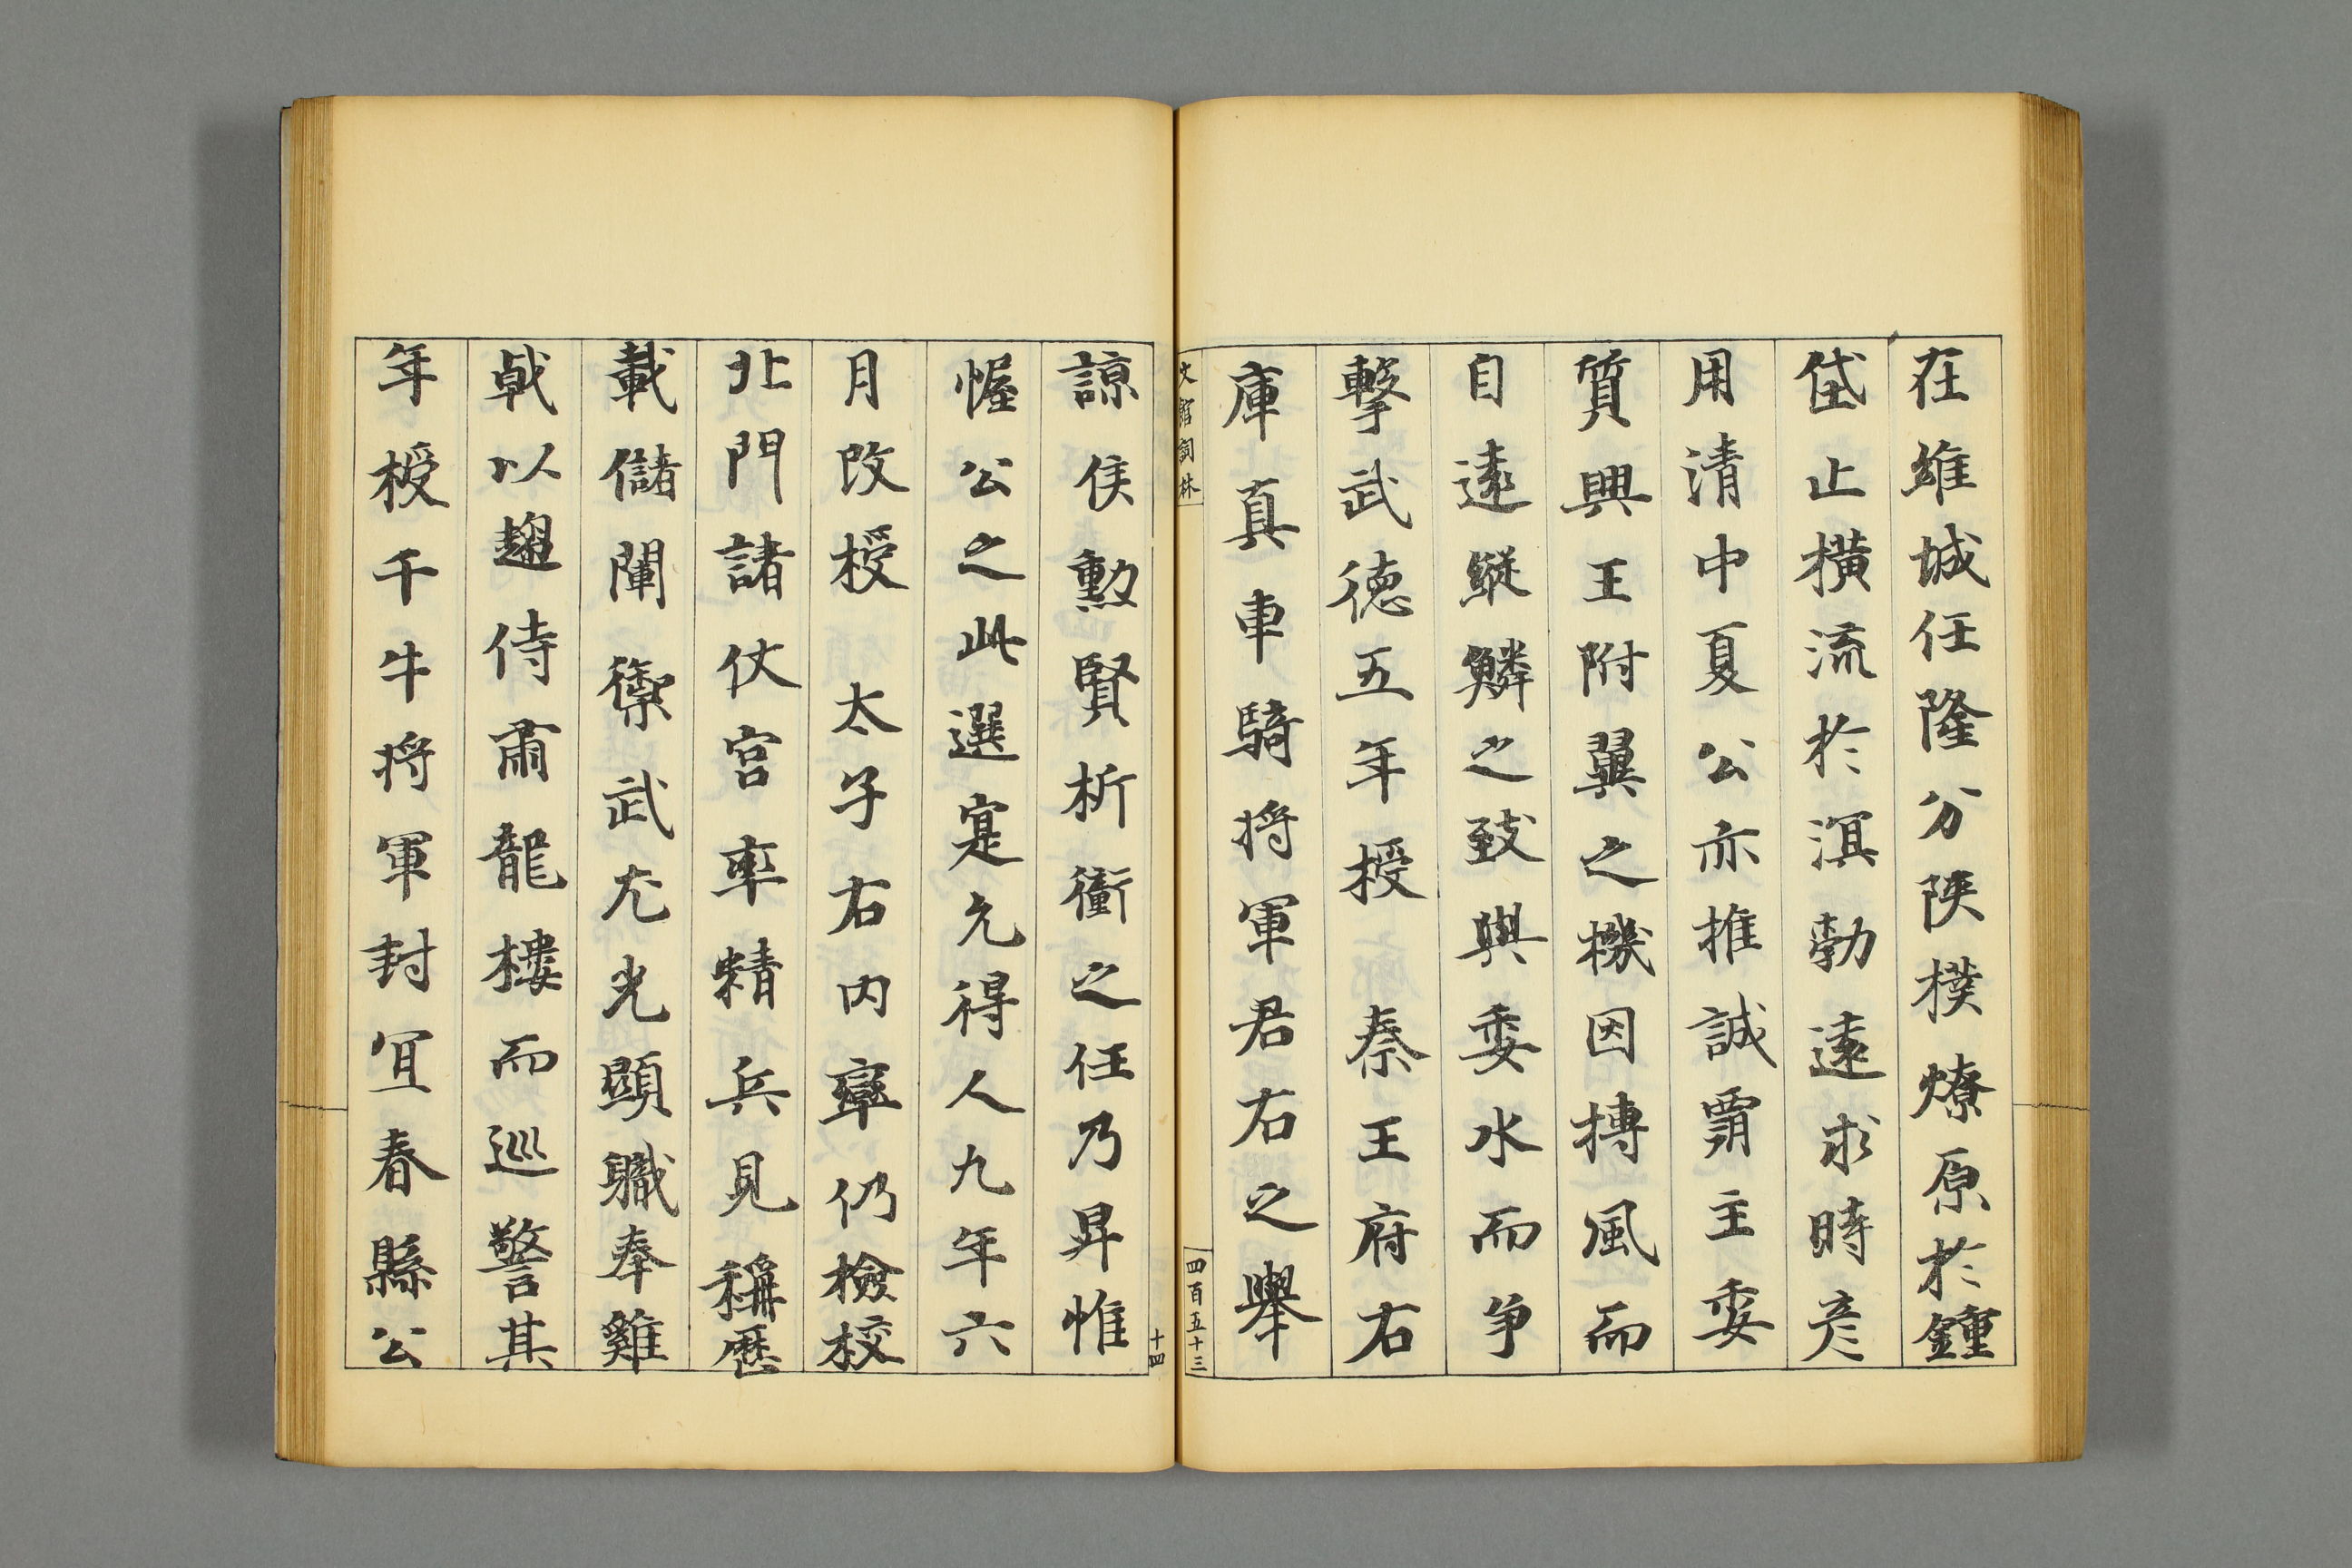 在雄城任隆分陝樸燎原於鍾
岱止横流於溟勃遠求時彦
用清中夏公亦推誠霸主委
質興王附翼之機因摶風而
自遠縱鱗之致與委水而争
擊武德五年授　秦王府右
庫真車騎将軍君右之舉
文館詞林
四百五十三
十四
諒佳勲賢析衝之任乃昇惟
幄公之此選寔允得人九年六
月改授　太子右内率仍檢校
北門諸仗宫率精兵見稱歷
載儲闈禦武尤光顯職奉雞
戟以趨侍肅龍樓而巡警其
年授千牛将軍封冝春縣公